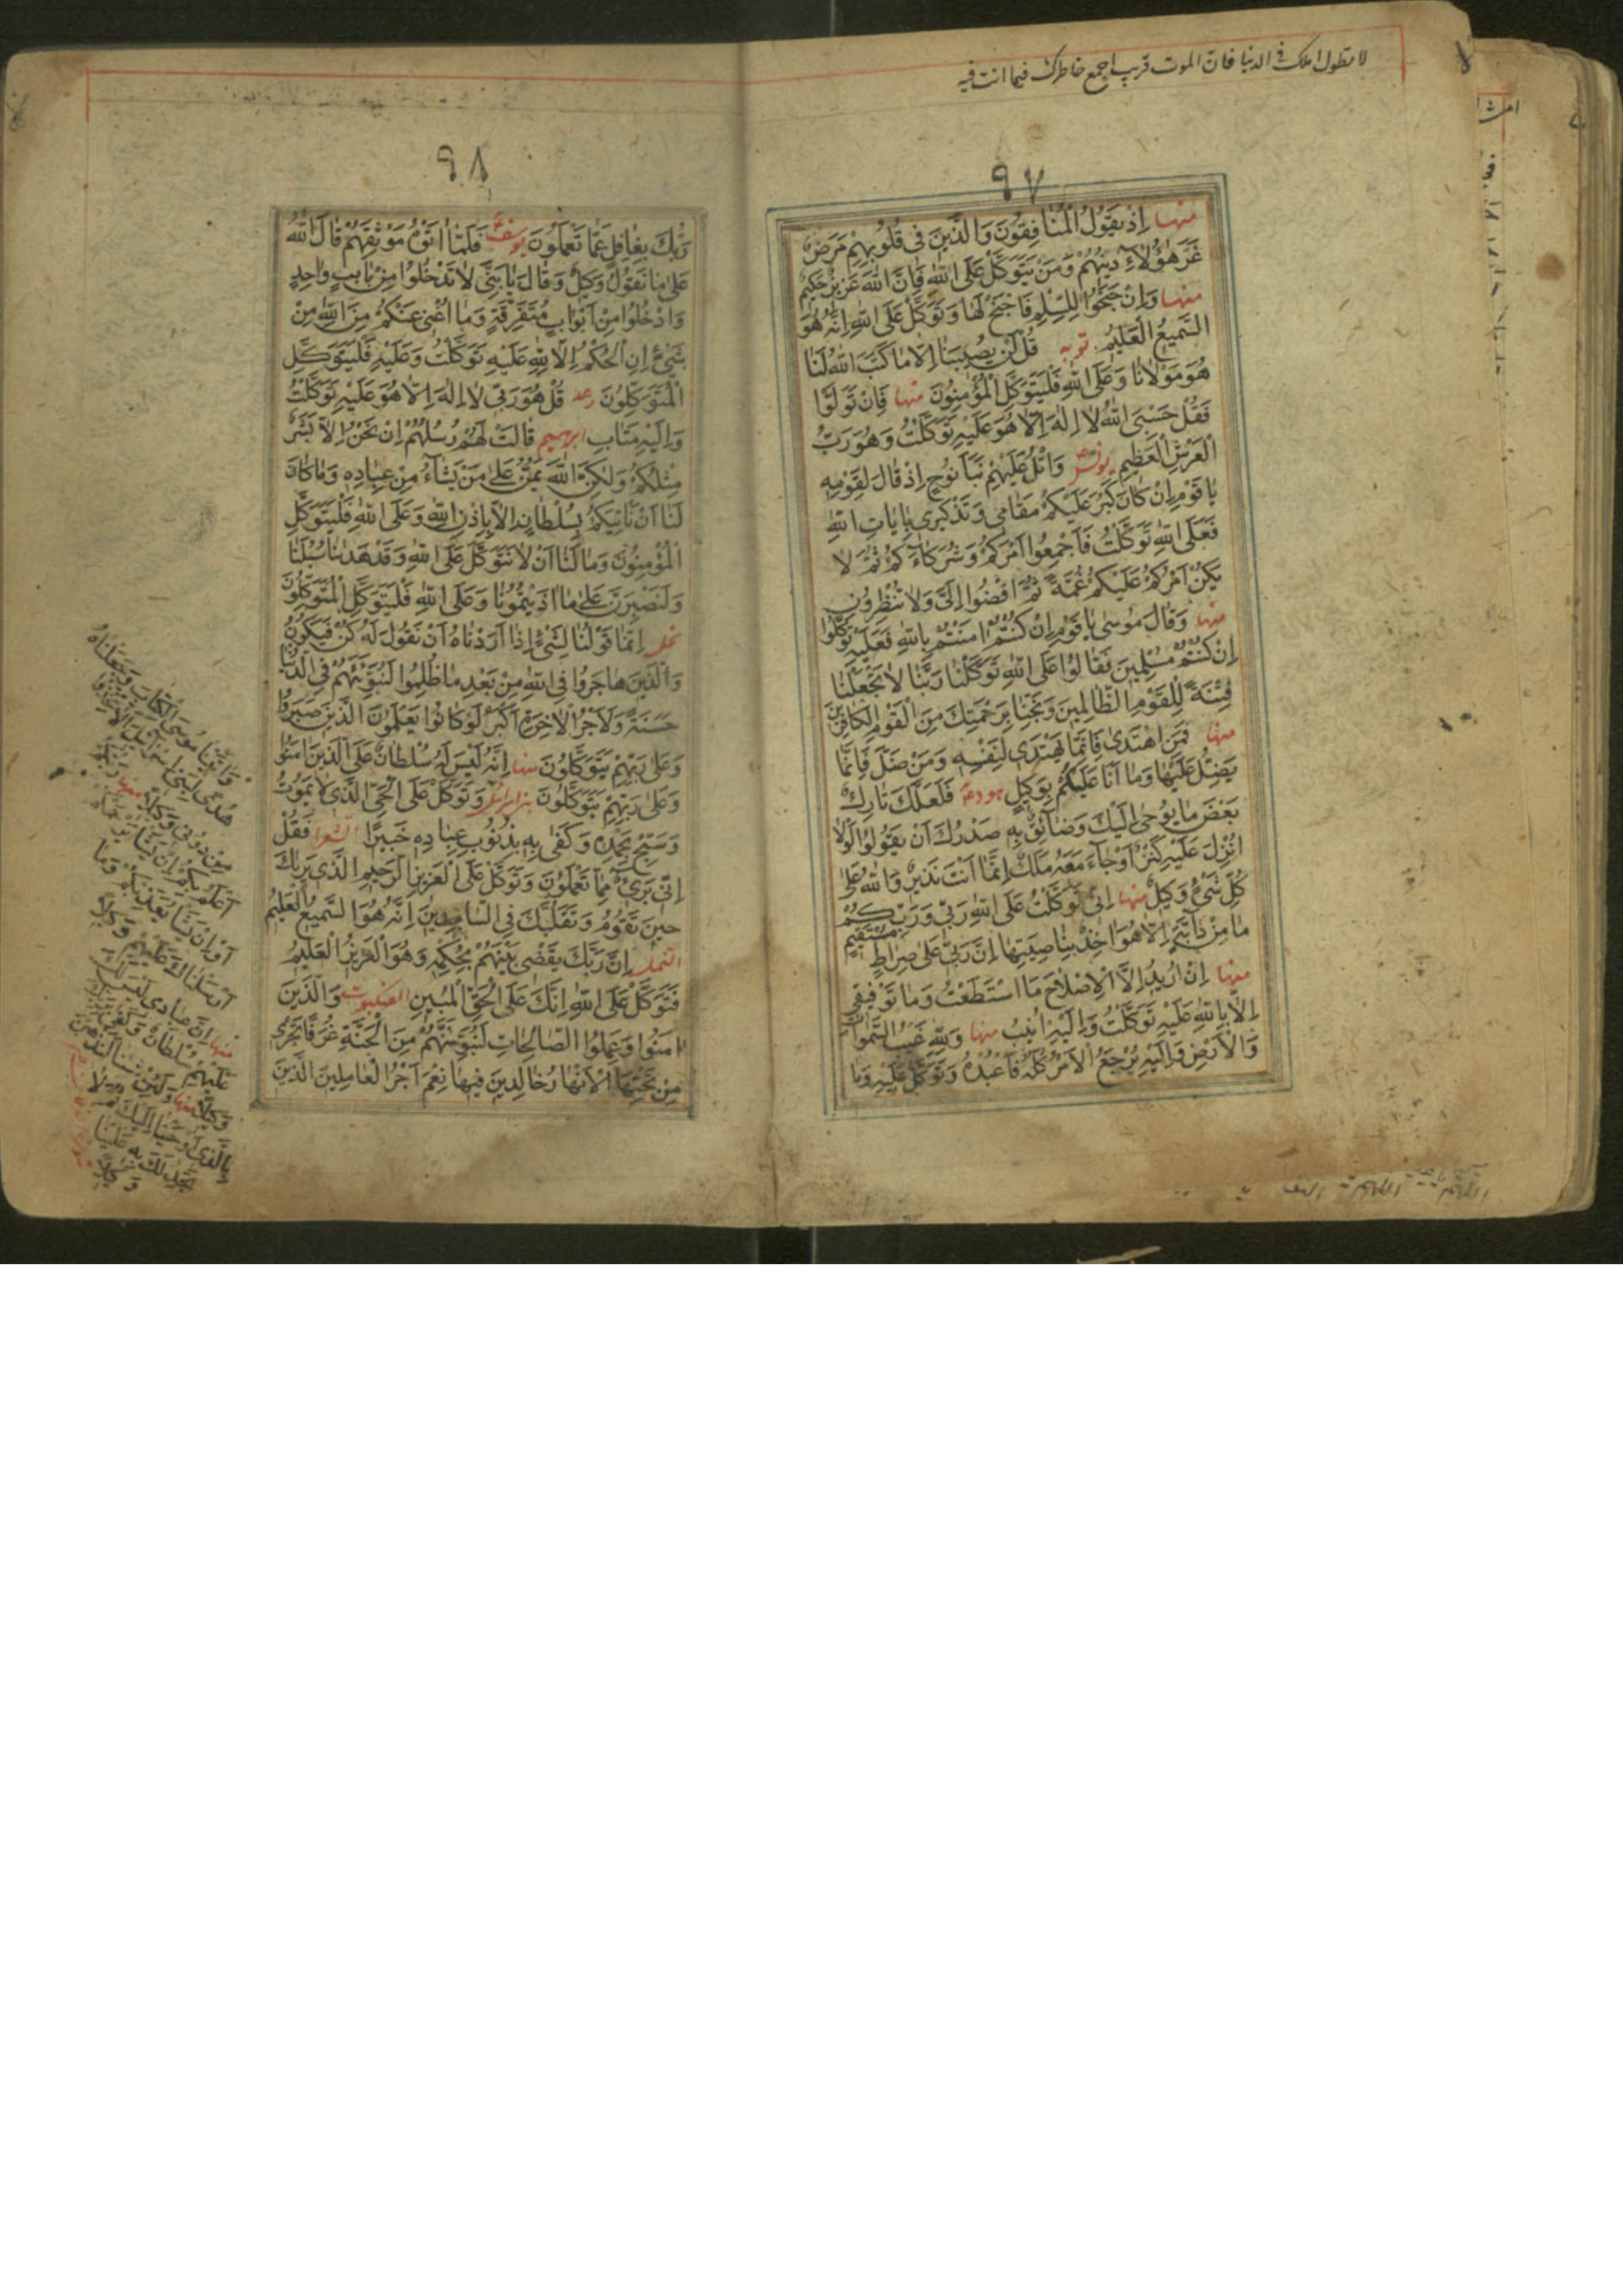 لا تطول املك فى الدنيا فان الموت قريب اجمع خاطرك فيما انت فيه
٩٧
منها اِذْ يَقُولُ الْمُنَافِقُونَ وَالَّذِينَ فِى قُلُوبِهِمْ مَرَضٌ
غَرَّ هٰؤُلَاءِ دِينُهُمْ وَمَنْ يَتَوَكَّلْ عَلَى اللّٰهِ فَاِنَّ اللّٰهَ عَزِيزٌ حَكِيمٌ
منها وَاِنْ جَنَحُوا لِلسِّلْمِ فَاجْنَحْ لَهَا وَتَوَكَّلْ عَلَى اللّٰهِ اِنَّهُ هُوَ
السَّمِيعُ الْعَلِيمُ توبه قُلْ لَنْ يُصِيبَنَا اِلَّا مَا كَتَبَ اللّٰهُ لَنَا
هُوَ مَوْلَانَا وَعَلَى اللّٰهِ فَلْيَتَوَكَّلِ الْمُؤْمِنُونَ منها فَاِنْ تَوَلَّوْا
فَقُلْ حَسْبِىَ اللّٰهُ لَا اِلٰهَ اِلَّا هُوَ عَلَيْهِ تَوَكَّلْتُ وَهُوَ رَبُّ
الْعَرْشِ الْعَظِيمِ يونس وَاتْلُ عَلَيْهِمْ نَبَاَ نُوحٍ اِذْ قَالَ لِقَوْمِهِ
يَا قَوْمِ اِنْ كَانَ كَبُرَ عَلَيْكُمْ مَقَامِى وَتَذْكِيرِى بِاٰيَاتِ اللّٰهِ
فَعَلَى اللّٰهِ تَوَكَّلْتُ فَاَجْمِعُوا اَمْرَكُمْ وَشُرَكَاءَكُمْ ثُمَّ لَا
يَكُنْ اَمْرُكُمْ عَلَيْكُمْ غُمَّةً ثُمَّ اقْضُوا اِلَىَّ وَلَا تُنْظِرُونِ
منها وَقَالَ مُوسٰى يَا قَوْمِ اِنْ كُنْتُمْ اٰمَنْتُمْ بِاللّٰهِ فَعَلَيْهِ تَوَكَّلُوا
اِنْ كُنْتُمْ مُسْلِمِينَ فَقَالُوا عَلَى اللّٰهِ تَوَكَّلْنَا رَبَّنَا لَا تَجْعَلْنَا
فِتْنَةً لِلْقَوْمِ الظَّالِمِينَ وَنَجِّنَا بِرَحْمَتِكَ مِنَ الْقَوْمِ الْكَافِرِينَ
منها فَمَنِ اهْتَدٰى فَاِنَّمَا يَهْتَدِى لِنَفْسِهِ وَمَنْ ضَلَّ فَاِنَّمَا
يَضِلُّ عَلَيْهَا وَمَا اَنَا عَلَيْكُمْ بِوَكِيلٍ هود فَلَعَلَّكَ تَارِكٌ
بَعْضَ مَا يُوحٰى اِلَيْكَ وَضَائِقٌ بِهِ صَدْرُكَ اَنْ يَقُولُوا لَوْلَا
اُنْزِلَ عَلَيْهِ كَنْزٌ اَوْ جَاءَ مَعَهُ مَلَكٌ اِنَّمَا اَنْتَ نَذِيرٌ وَاللّٰهُ عَلٰى
كُلِّ شَىْءٍ وَكِيلٌ منها اِنِّى تَوَكَّلْتُ عَلَى اللّٰهِ رَبِّى وَرَبِّكُمْ
مَا مِنْ دَابَّةٍ اِلَّا هُوَ اٰخِذٌ بِنَاصِيَتِهَا اِنَّ رَبِّى عَلٰى صِرَاطٍ مُسْتَقِيمٍ
منها اِنْ اُرِيدُ اِلَّا الْاِصْلَاحَ مَا اسْتَطَعْتُ وَمَا تَوْفِيقِى
اِلَّا بِاللّٰهِ عَلَيْهِ تَوَكَّلْتُ وَاِلَيْهِ اُنِيبُ منها وَلِلّٰهِ غَيْبُ السَّمٰوَاتِ
وَالْاَرْضِ وَاِلَيْهِ يُرْجَعُ الْاَمْرُ كُلُّهُ فَاعْبُدْهُ وَتَوَكَّلْ عَلَيْهِ وَمَا
٩٨
رَبُّكَ بِغَافِلٍ عَمَّا تَعْمَلُونَ يوسف فَلَمَّا اٰتَوْهُ مَوْثِقَهُمْ قَالَ اللّٰهُ
عَلٰى مَا نَقُولُ وَكِيلٌ وَقَالَ يَا بَنِىَّ لَا تَدْخُلُوا مِنْ بَابٍ وَاحِدٍ
وَادْخُلُوا مِنْ اَبْوَابٍ مُتَفَرِّقَةٍ وَمَا اُغْنِى عَنْكُمْ مِنَ اللّٰهِ مِنْ
شَىْءٍ اِنِ الْحُكْمُ اِلَّا لِلّٰهِ عَلَيْهِ تَوَكَّلْتُ وَعَلَيْهِ فَلْيَتَوَكَّلِ
الْمُتَوَكِّلُونَ رعد قُلْ هُوَ رَبِّى لَا اِلٰهَ اِلَّا هُوَ عَلَيْهِ تَوَكَّلْتُ
وَاِلَيْهِ مَتَابِ ابرهيم قَالَتْ لَهُمْ رُسُلُهُمْ اِنْ نَحْنُ اِلَّا بَشَرٌ
مِثْلُكُمْ وَلٰكِنَّ اللّٰهَ يَمُنُّ عَلٰى مَنْ يَشَاءُ مِنْ عِبَادِهِ وَمَا كَانَ
لَنَا اَنْ نَاْتِيَكُمْ بِسُلْطَانٍ اِلَّا بِاِذْنِ اللّٰهِ وَعَلَى اللّٰهِ فَلْيَتَوَكَّلِ
الْمُؤْمِنُونَ وَمَا لَنَا اَنْ لَا نَتَوَكَّلَ عَلَى اللّٰهِ وَقَدْ هَدٰينَا سُبُلَنَا
وَلَنَصْبِرَنَّ عَلٰى مَا اٰذَيْتُمُونَا وَعَلَى اللّٰهِ فَلْيَتَوَكَّلِ الْمُتَوَكِّلُونَ
نحل اِنَّمَا قَوْلُنَا لِشَىْءٍ اِذَا اَرَدْنَاهُ اَنْ نَقُولَ لَهُ كُنْ فَيَكُونُ
وَالَّذِينَ هَاجَرُوا فِى اللّٰهِ مِنْ بَعْدِ مَا ظُلِمُوا لَنُبَوِّئَنَّهُمْ فِى الدُّنْيَا
حَسَنَةً وَلَاَجْرُ الْاٰخِرَةِ اَكْبَرُ لَوْ كَانُوا يَعْلَمُونَ الَّذِينَ صَبَرُوا
وَعَلٰى رَبِّهِمْ يَتَوَكَّلُونَ منها اِنَّهُ لَيْسَ لَهُ سُلْطَانٌ عَلَى الَّذِينَ اٰمَنُوا
وَعَلٰى رَبِّهِمْ يَتَوَكَّلُونَ وَتَوَكَّلْ عَلَى الْحَىِّ الَّذِى لَا يَمُوتُ
وَسَبِّحْ بِحَمْدِهِ وَكَفٰى بِهِ بِذُنُوبِ عِبَادِهِ خَبِيرًا الشعرا فَقُلْ
اِنِّى بَرِىءٌ مِمَّا تَعْمَلُونَ وَتَوَكَّلْ عَلَى الْعَزِيزِ الرَّحِيمِ الَّذِى يَرٰيكَ
حِينَ تَقُومُ وَتَقَلُّبَكَ فِى السَّاجِدِينَ اِنَّهُ هُوَ السَّمِيعُ الْعَلِيمُ
النمل اِنَّ رَبَّكَ يَقْضِى بَيْنَهُمْ بِحُكْمِهِ وَهُوَ الْعَزِيزُ الْعَلِيمُ
فَتَوَكَّلْ عَلَى اللّٰهِ اِنَّكَ عَلَى الْحَقِّ الْمُبِينِ العنكبوت وَالَّذِينَ
اٰمَنُوا وَعَمِلُوا الصَّالِحَاتِ لَنُبَوِّئَنَّهُمْ مِنَ الْجَنَّةِ غُرَفًا تَجْرِى
مِنْ تَحْتِهَا الْاَنْهَارُ خَالِدِينَ فِيهَا نِعْمَ اَجْرُ الْعَامِلِينَ الَّذِينَ
وَاٰتَيْنَا مُوسَى الْكِتَابَ وَجَعَلْنَاهُ
هُدًى لِبَنِى اِسْرَائِيلَ اَلَّا تَتَّخِذُوا
مِنْ دُونِى وَكِيلًا منها رَبُّكُمْ
اَعْلَمُ بِكُمْ اِنْ يَشَاْ يَرْحَمْكُمْ
اَوْ اِنْ يَشَاْ يُعَذِّبْكُمْ وَمَا
اَرْسَلْنَاكَ عَلَيْهِمْ وَكِيلًا
منها اِنَّ عِبَادِى لَيْسَ لَكَ
عَلَيْهِمْ سُلْطَانٌ وَكَفٰى بِرَبِّكَ
وَكِيلًا منها وَلَئِنْ شِئْنَا لَنَذْهَبَنَّ
بِالَّذِى اَوْحَيْنَا اِلَيْكَ ثُمَّ لَا
تَجِدُ لَكَ بِهِ عَلَيْنَا
وَكِيلًا